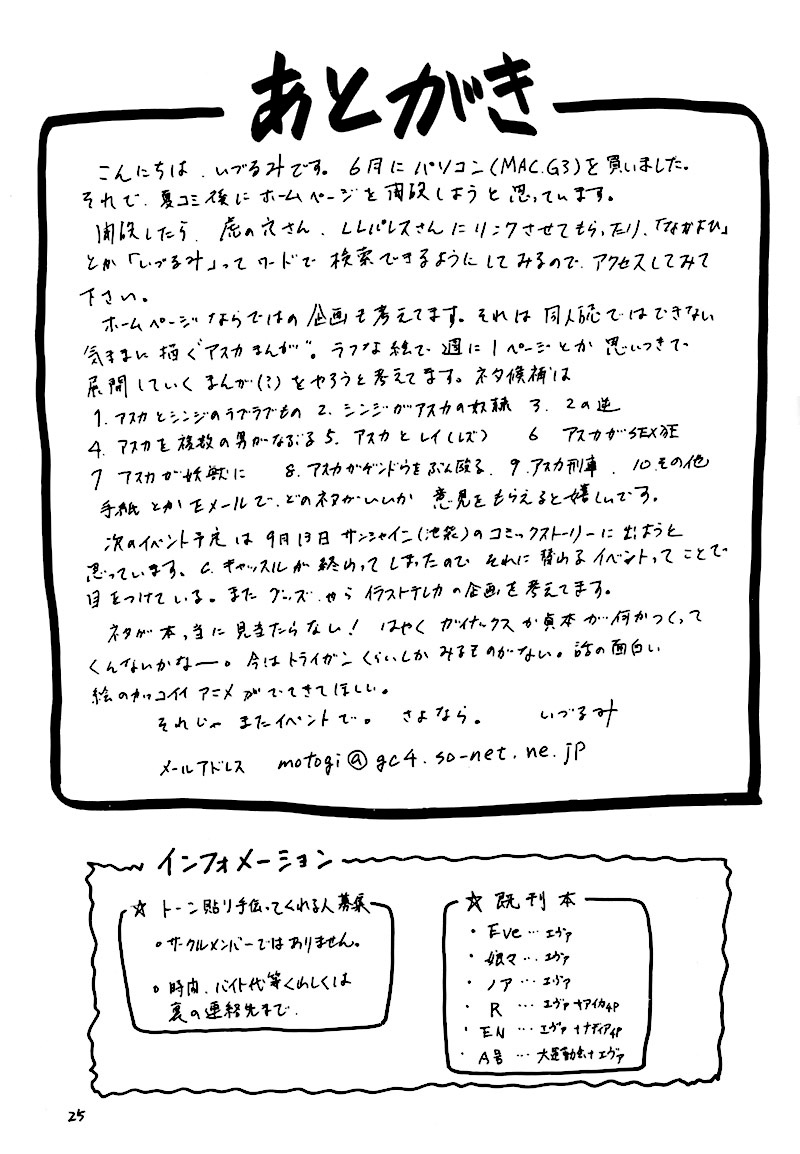 あとがき
こんにちは、いづるみです。6月にパソコン(MAC.G3)を買いました。
それで、夏コミ後にホームページを開設しようと思っています。
開設したら、虎の穴さん、LLパレスさんにリンクさせてもらったり、「なかよひ」
とか「いづるみ」ってワードで検索できるようにしてみるので、アクセスしてみて
下さい。
ホームページならではの企画も考えてます。それは同人誌ではできない
気ままに描く"アスカまんが"。ラフな絵で週に1ページとか思いつきで
展開していくまんが(?)をやろうと考えてます。ネタ候補は
1.アスカとシンジのラブラブもの 2.シンジがアスカの奴隷 3.2の逆
4.アスカを複数の男がなぶる 5.アスカとレイ(レズ) 6 アスカがSEX狂
7 アスカが妖獣に 8.アスカがゲンドウをぶん殴る、9.アスカ刑事、10.その他
手紙とかEメールで、どのネタがいいか意見をもらえると嬉しいです。
次のイベント予定は9月13日サンシャイン(池袋)のコミックストーリーに出ようと
思っています。C.キャッスルが終わってしまったので、それに替わるイベントってことで
目をつけている。またグッズ、やらイラストテレカの企画を考えてます。
ネタが本当に見当たらない！はやくガイナックスか貞本が何かつくって
くんないかなー。今はトライガンくらいしかみるものがない。話の面白い
絵のカッコイイアニメがでてきてほしい。
それじゃまたイベントで。さよなら。 いづるみ
メールアドレス motogi@gc4.so-net.ne.jp
インフォメーション
☆トーン貼り手伝ってくれる人募集
○サークルメンバーではありません。
○時間、バイト代等くわしくは
裏の連絡先まで、
☆既刊本
・Eve…エヴァ
・娘々…エヴァ
・ノア…エヴァ
・R …エヴァ+アイカ4P
・EN …エヴァ+ナディア4P
・A号 …大運動会+エヴァ
25